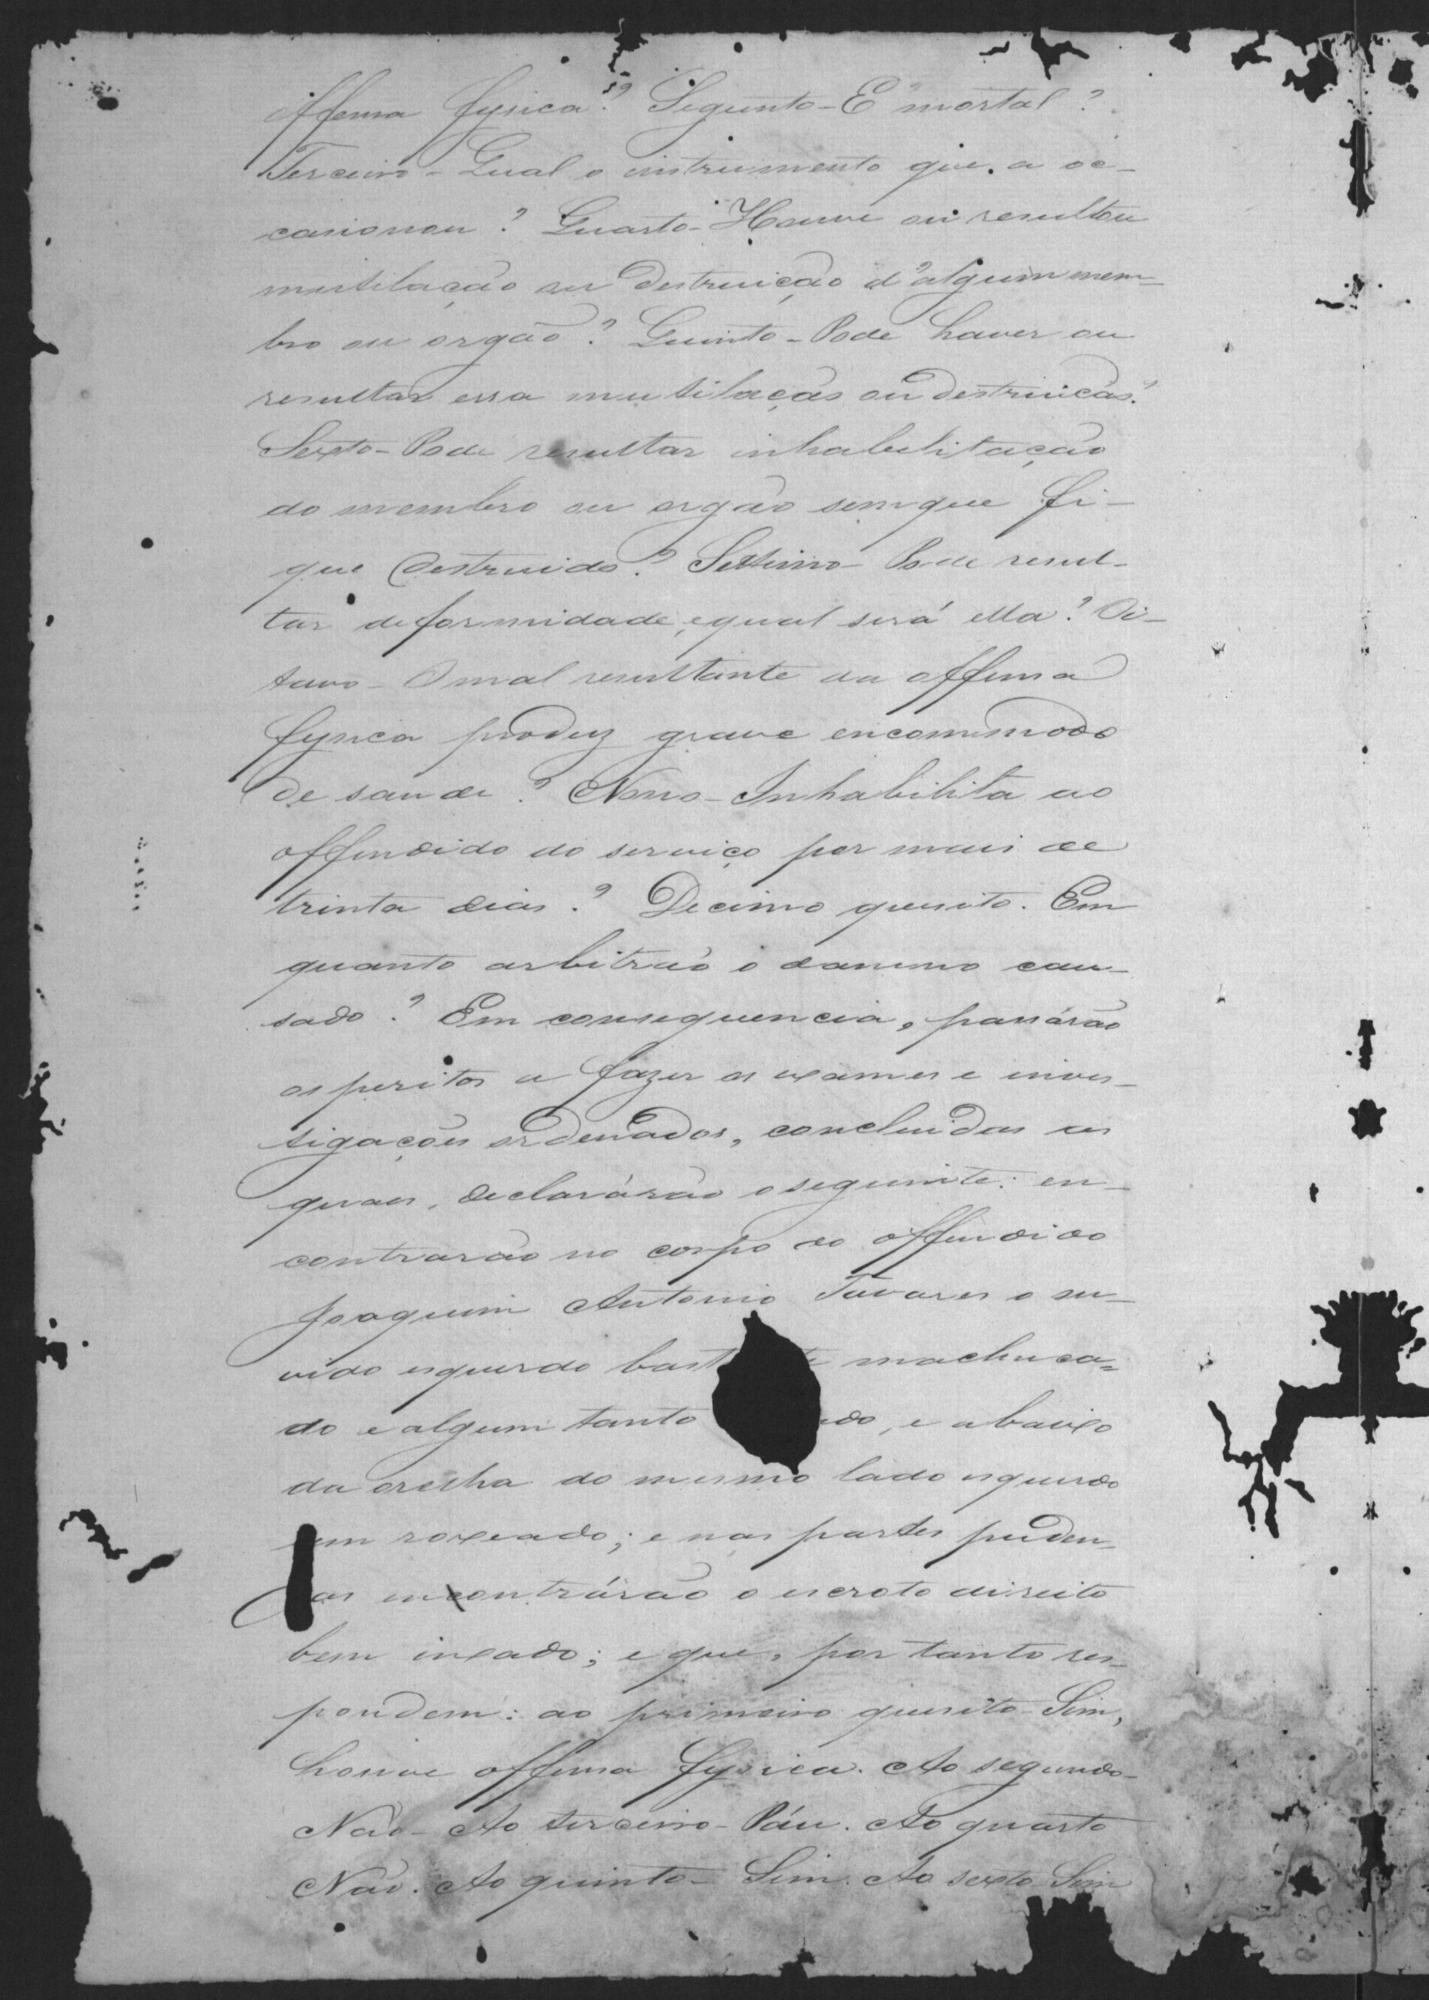 offensa fysica? Segunto - E' mortal?
Terceiro - Qual o instrumento que a oc-
casionou? Quarto - Houve ou resultou
mutilação ou destruição d'algum mem-
bro ou orgão? Quinto - Pode haver ou
resultar essa mutilação ou destruição?
Sexto - Pode resultar inhabilitação
do membro ou orgão sem que fi-
que destruido? Settimo - Pode resul-
tar deformidade, e qual será ella? Oi-
tavo - O mal resultante da offensa
fysica produz grave encommodo
de saude? Nono - Inhabilita ao
offendido do serviço por mais de
trinta dias? Decimo quesito. Em
quanto arbitrão o damno cau-
sado? Em consequencia, passárão
os peritos a fazer os exames e inves-
tigações ordenados, concluidas as
quaes, declarárão o seguinte: en-
contrarão no corpo do offendido
Joaquim Antonio Tavares o ou-
vido esquerdo bast te machuca-
do e algum tanto do, e abaixo
da orelha do mesmo lado esquerdo
um roxeado; e nas partes puden-
das encontrárão o escroto direito
bem inxado; e que, por tanto res-
pondem: ao primeiro quesito - Sim,
houve offensa fysica. Ao segundo -
Não - Ao terceiro - Páu. Ao quarto
Não. Ao quinto - Sim. Ao sexto Sim